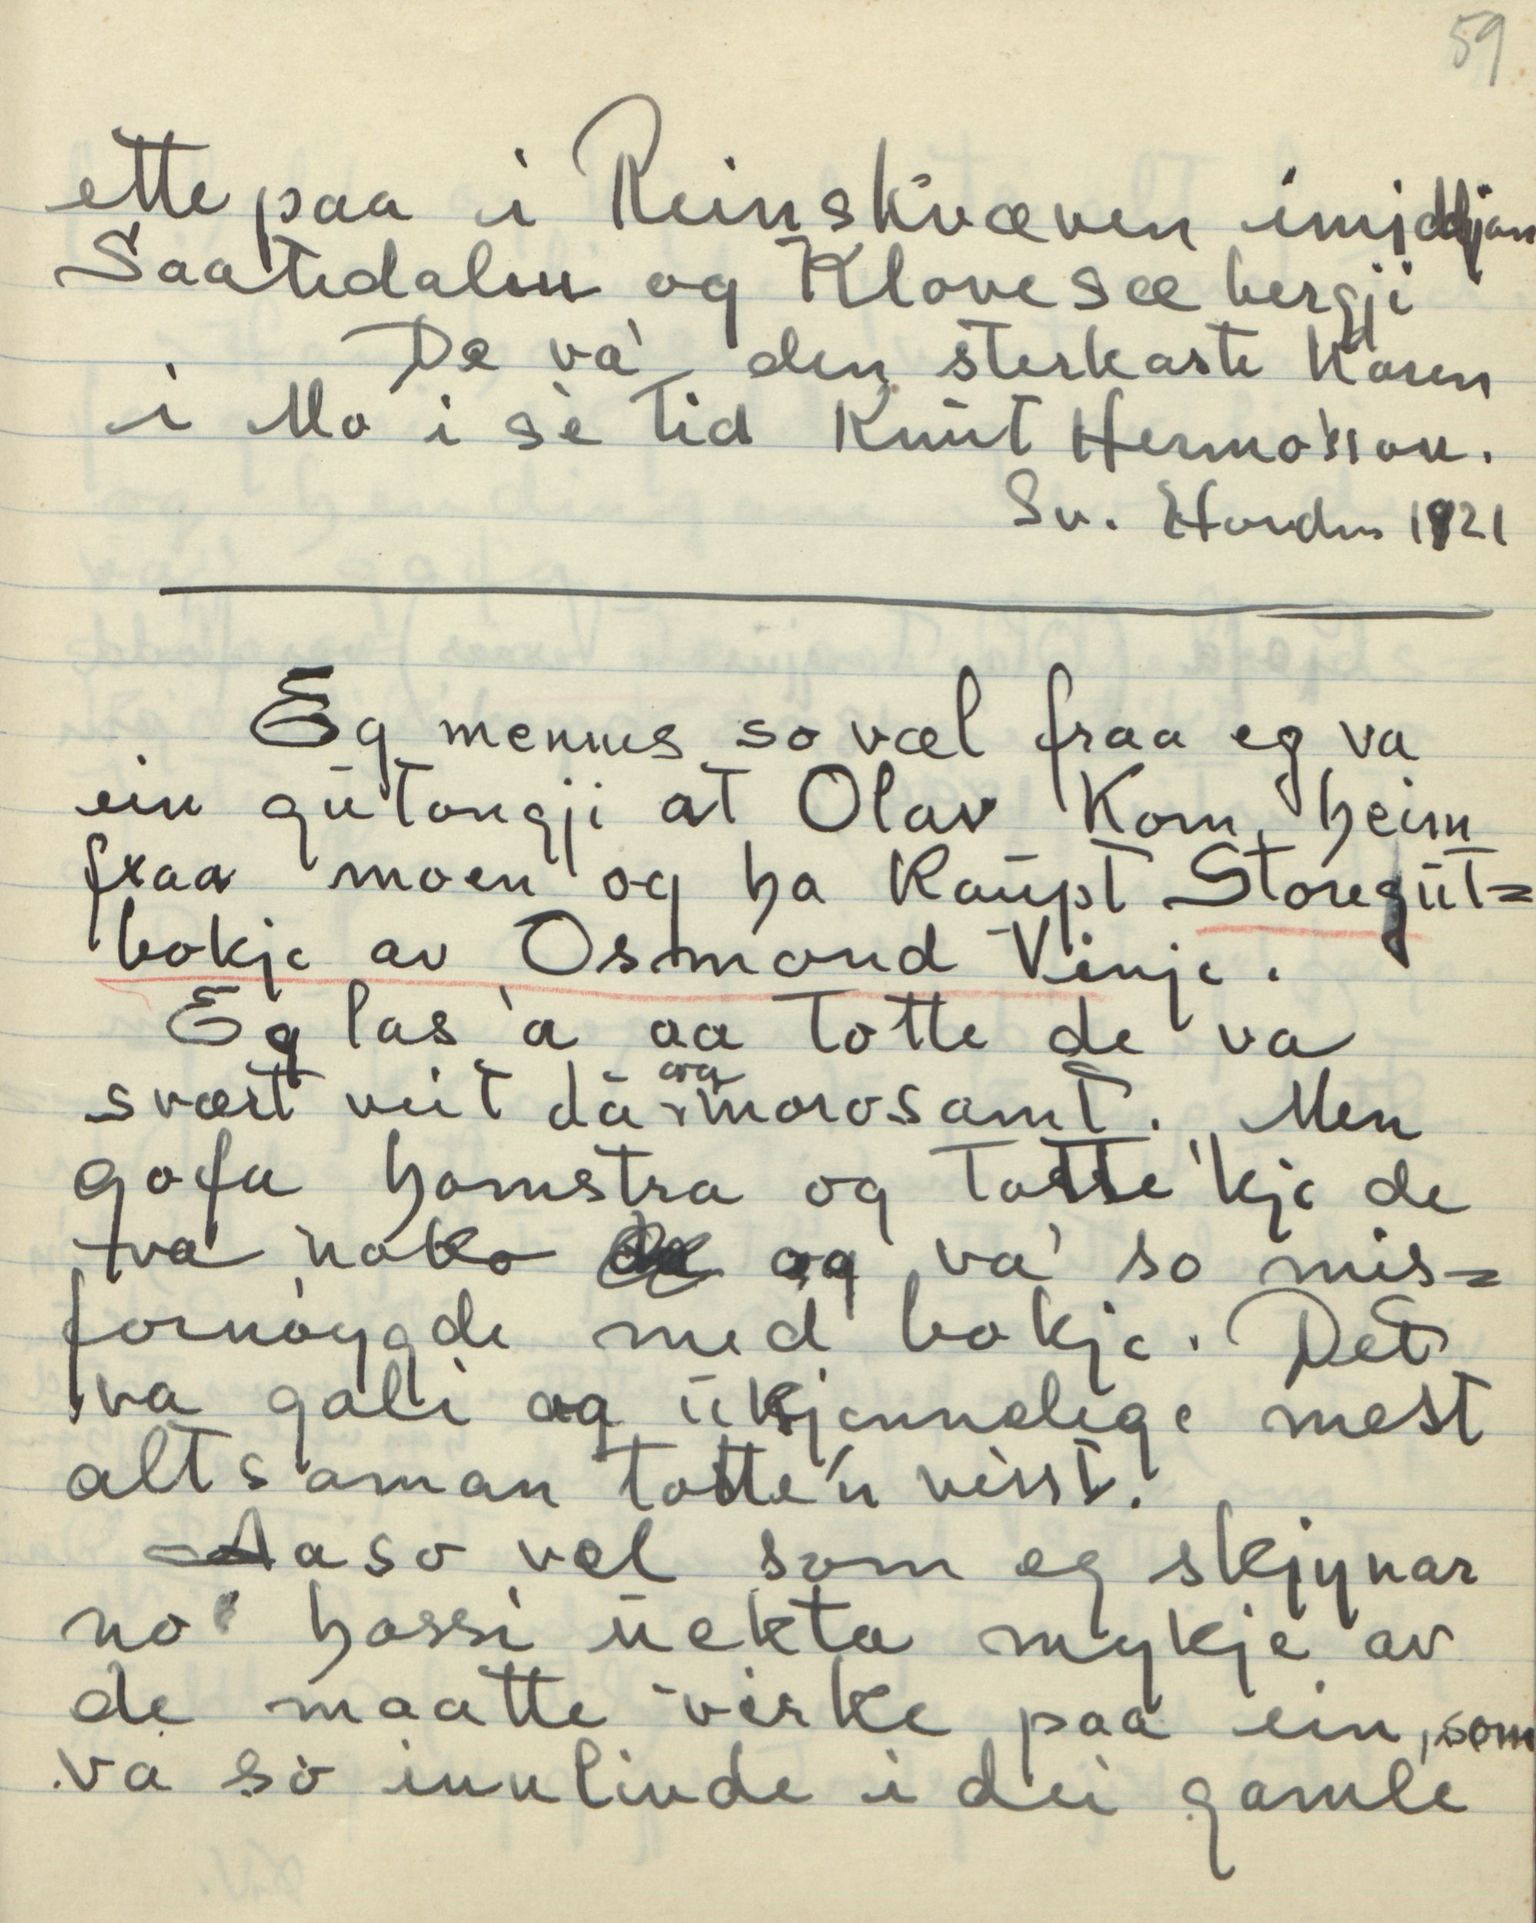 59
ette paa i Reinskvæven imjddjan
Saatedalen og Klovesæ bergji
De va' den sterkaste Karen
i Mo i sè tid Knut Hermo'sson.
Sv. Hovden 1921
Eg mennes so væl fraa eg va
ein gutongji at Olav Kom heim
fraa moen og ha Kaupt Storegut=
bokje av Osmond Vinje.
Eg las 'a aa totte de va
svært veit dä og morosamt. Men
gofa homstra og totte 'kje de
va noko og va' so mis=
fornøygde med bokje. Det
va gali og ukjennelege mest
altsaman totte'n visst.
Aa so vel som eg skjynar
no hossi uekta mykje av
de maatte virke paa ein, som
va so innlivde i dei gamle